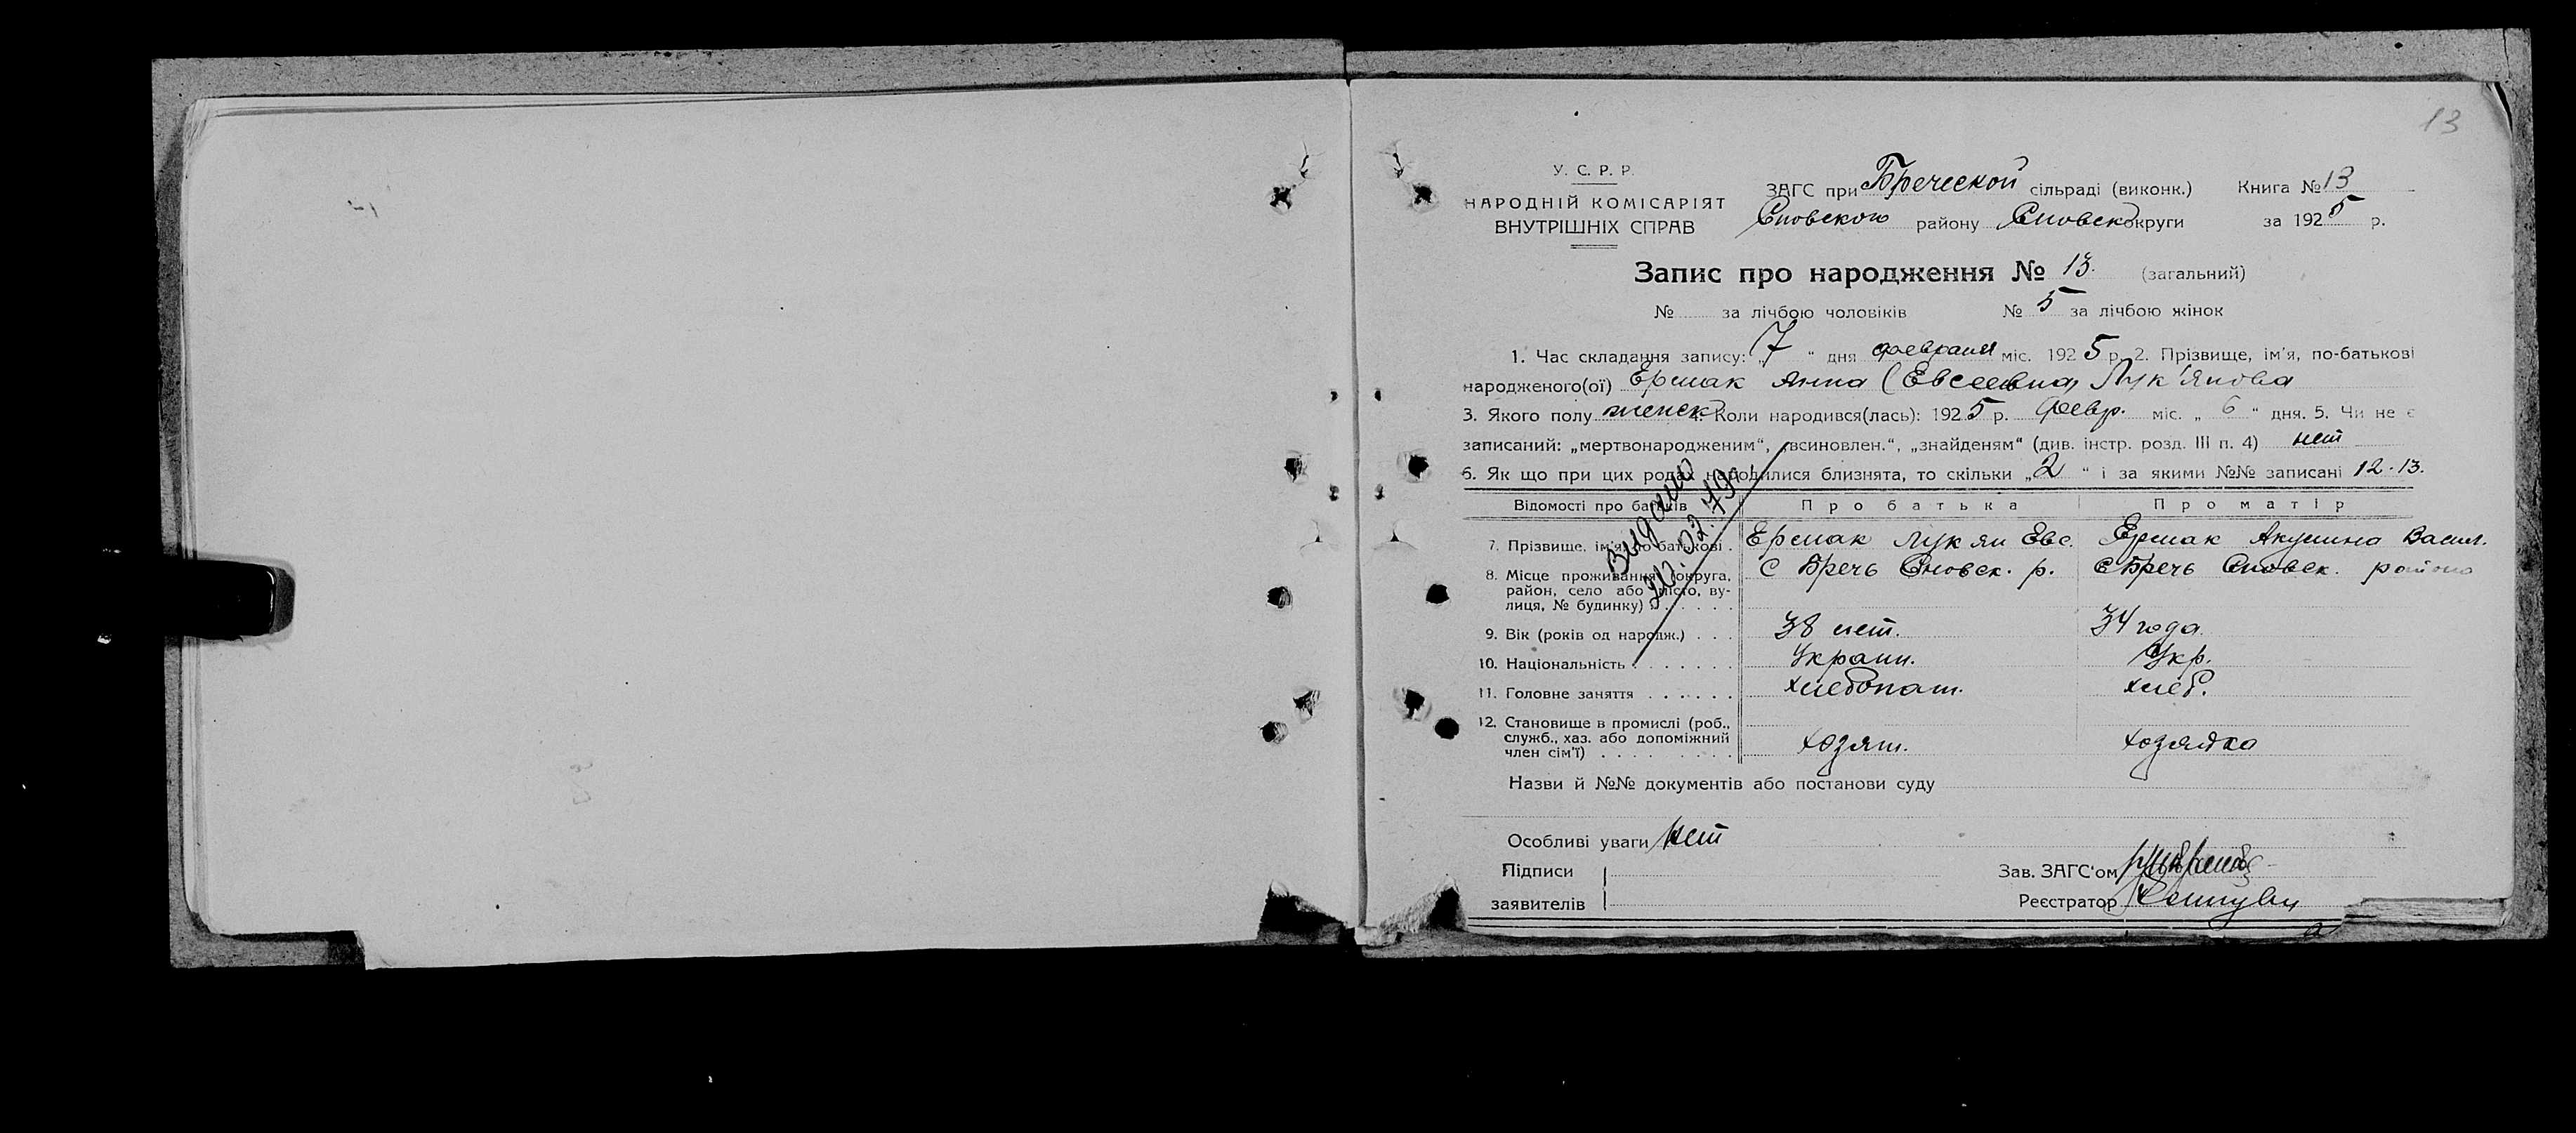 13
У. С. Р. Р.
НАРОДНІЙ КОМІСАРІЯТ
ВНУТРІШНІХ СПРАВ
ЗАГС при Бреческой сільраді (виконк.) Книга № 13
Сновского району Сновск округи за 1925 р.
Запис про народження № 13. (загальний)
№ за лічбою чоловіків № 5 за лічбою жінок
1. Час складання запису: „7“ дня февраля міс. 1925 р. 2. Прізвище, ім'я, по-батькові
народженого(ої) Ермак Анна (Евсеевна) Лук'янова
3. Якого полу женск 4. Коли народився(лась): 1925 р. Февр. міс. „6“ дня. 5. Чи не є
записаний: „мертвонародженим“, „всиновлен.“, „знайденям“ (див. інстр. розд. III п. 4) нет
6. Як що при цих родах народилися близнята, то скільки „2“ і за якими №№ записані 12-13.
Відомості про батьків Про батька Про матір
7. Прізвище, ім'я, по-батькові . Ермак Лукян Евс. Ермак Акулина Васил.
8. Місце проживання (округа, С Бречь Сновск. р. С Бречь Сновск. района
район, село або місто, ву-
лиця, № будинку) . . . . . .
9. Вік (років од народж.) . . . 38 лет. 34 года.
10. Національність . . . . . . . Украин. Укр.
11. Головне заняття . . . . . . Хлебопаш. хлеб.
12. Становище в промислі (роб.,
служб., хаз. або допоміжний
член сім'ї) . . . . . . . . . хозяин. хозяйка
Видано
Назви й №№ документів або постанови суду
Особливі уваги Нет
Підписи
заявителів
Зав. ЗАГС'ом
Реєстратор